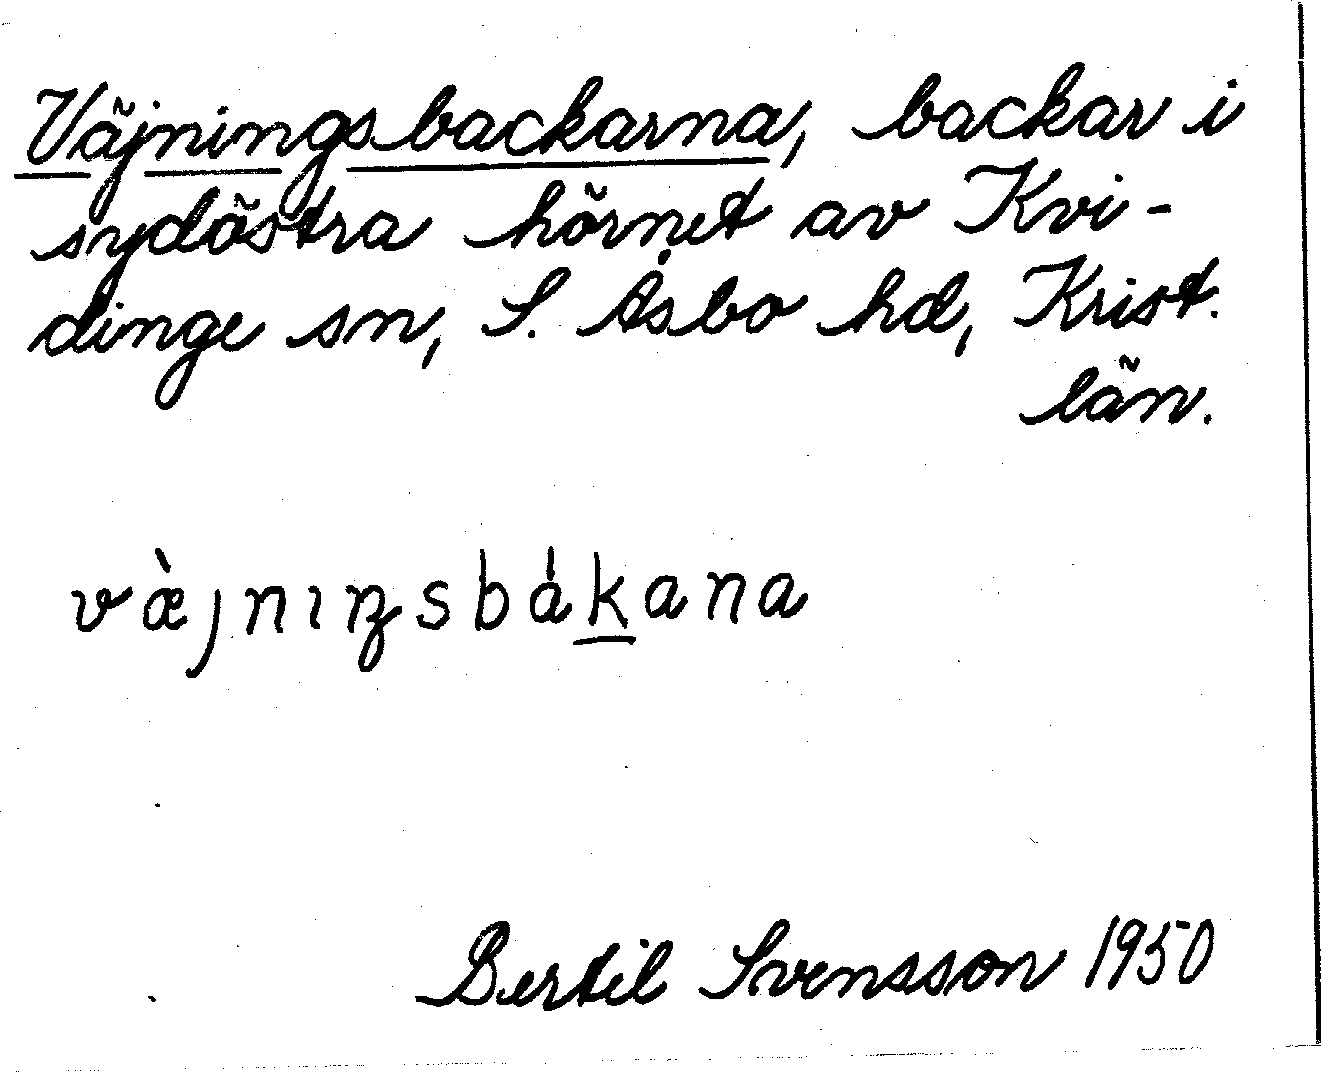 Väjningsbackarna, backar i
sydöstra hörnet av Kvi-
dinge sn, S. Åsbo hd, Krist.
län.
væ̀jnıŋsbákana
Bertil Svensson 1950